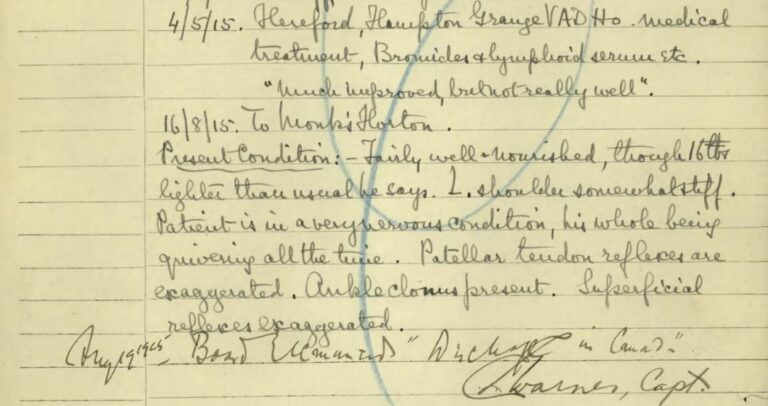 4/5/15. Hereford, Hampton Grange VAD Ho. medical
treatment, Bromides & lymphoid serum etc.
"Much improved, but not really well".
16/8/15. To Monk's Horton.
Present Condition:- Fairly well-nourished, though 16 lbs
lighter than usual he says. L. shoulder somewhat stiff.
Patient is in a very nervous condition, his whole being
quivering all the time. Patellar tendon reflexes are
exaggerated. Ankle clonus present. Superficial
reflexes exaggerated.
Aug 19 1915 - Board "Discharge in Canada"
Warner, Capt.